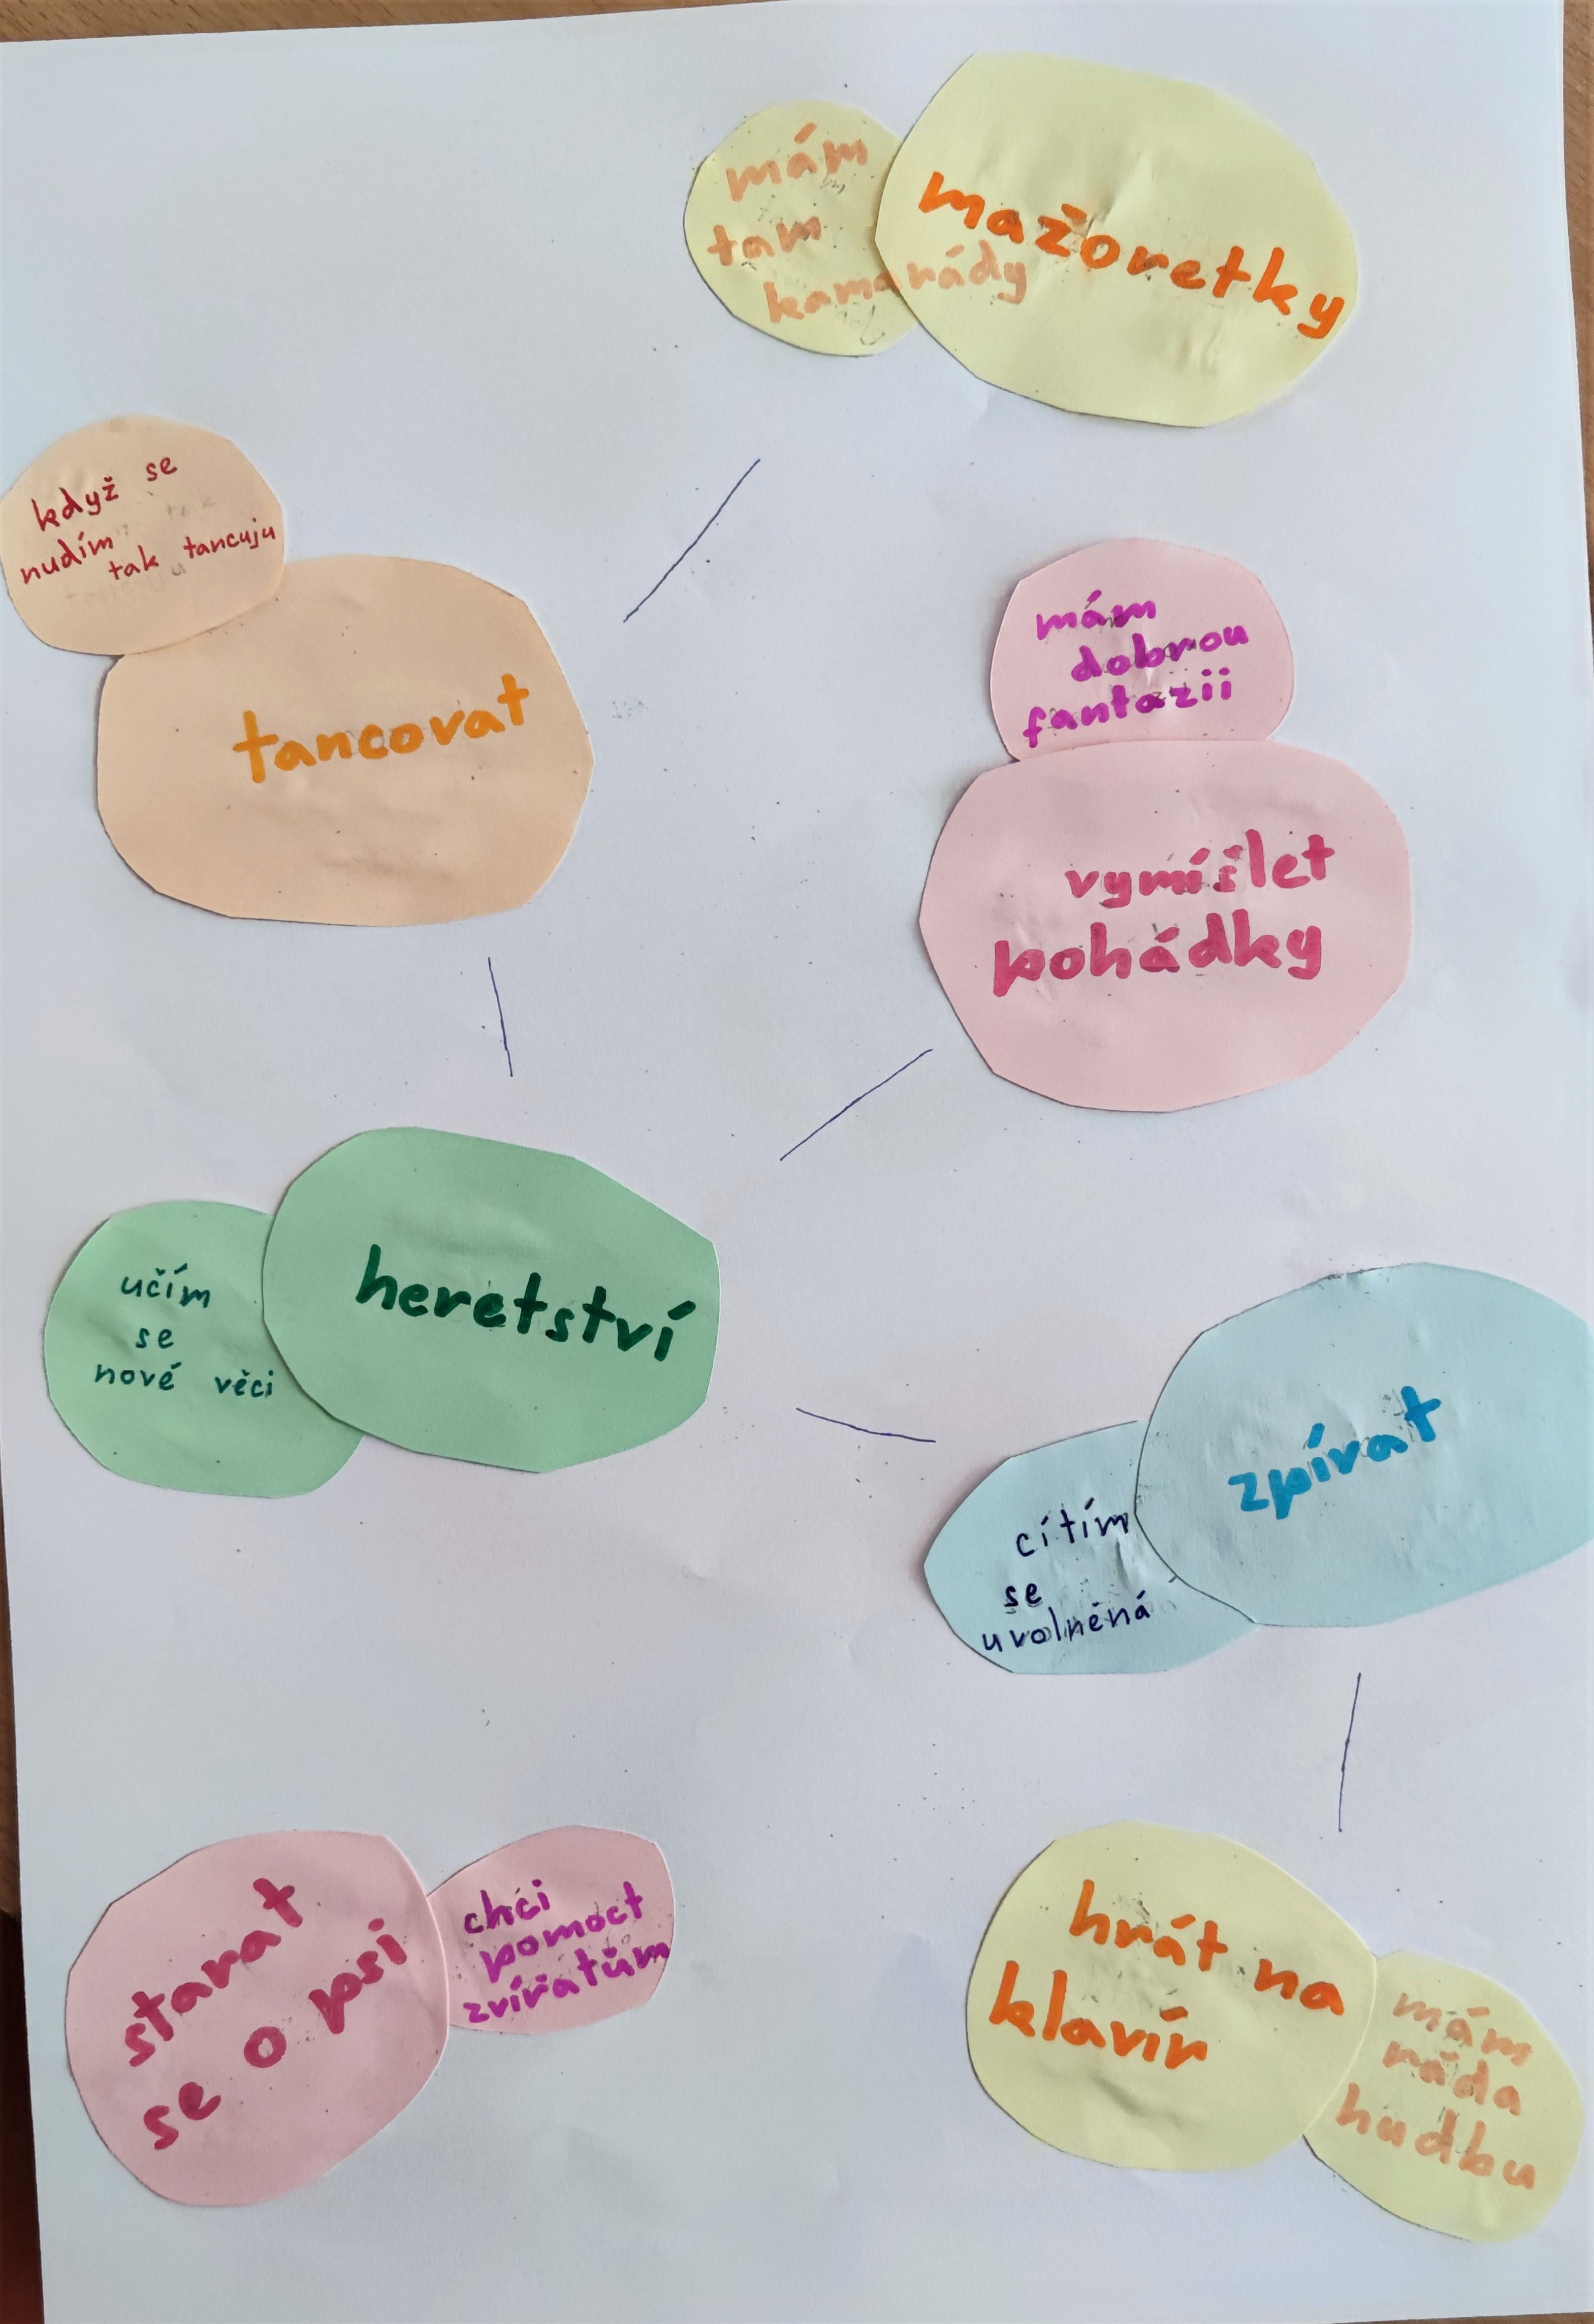 mám
tam
kamarády
mažoretky
když se
nudím
tak tancuju
tancovat
mám
dobrou
fantazii
vymíšlet
pohádky
učím
se
nové věci
heretství
cítím
se
uvolněná
zpívat
starat
se o psi
chci
pomoct
zvířatům
hrát na
klavír
mám
ráda
hudbu